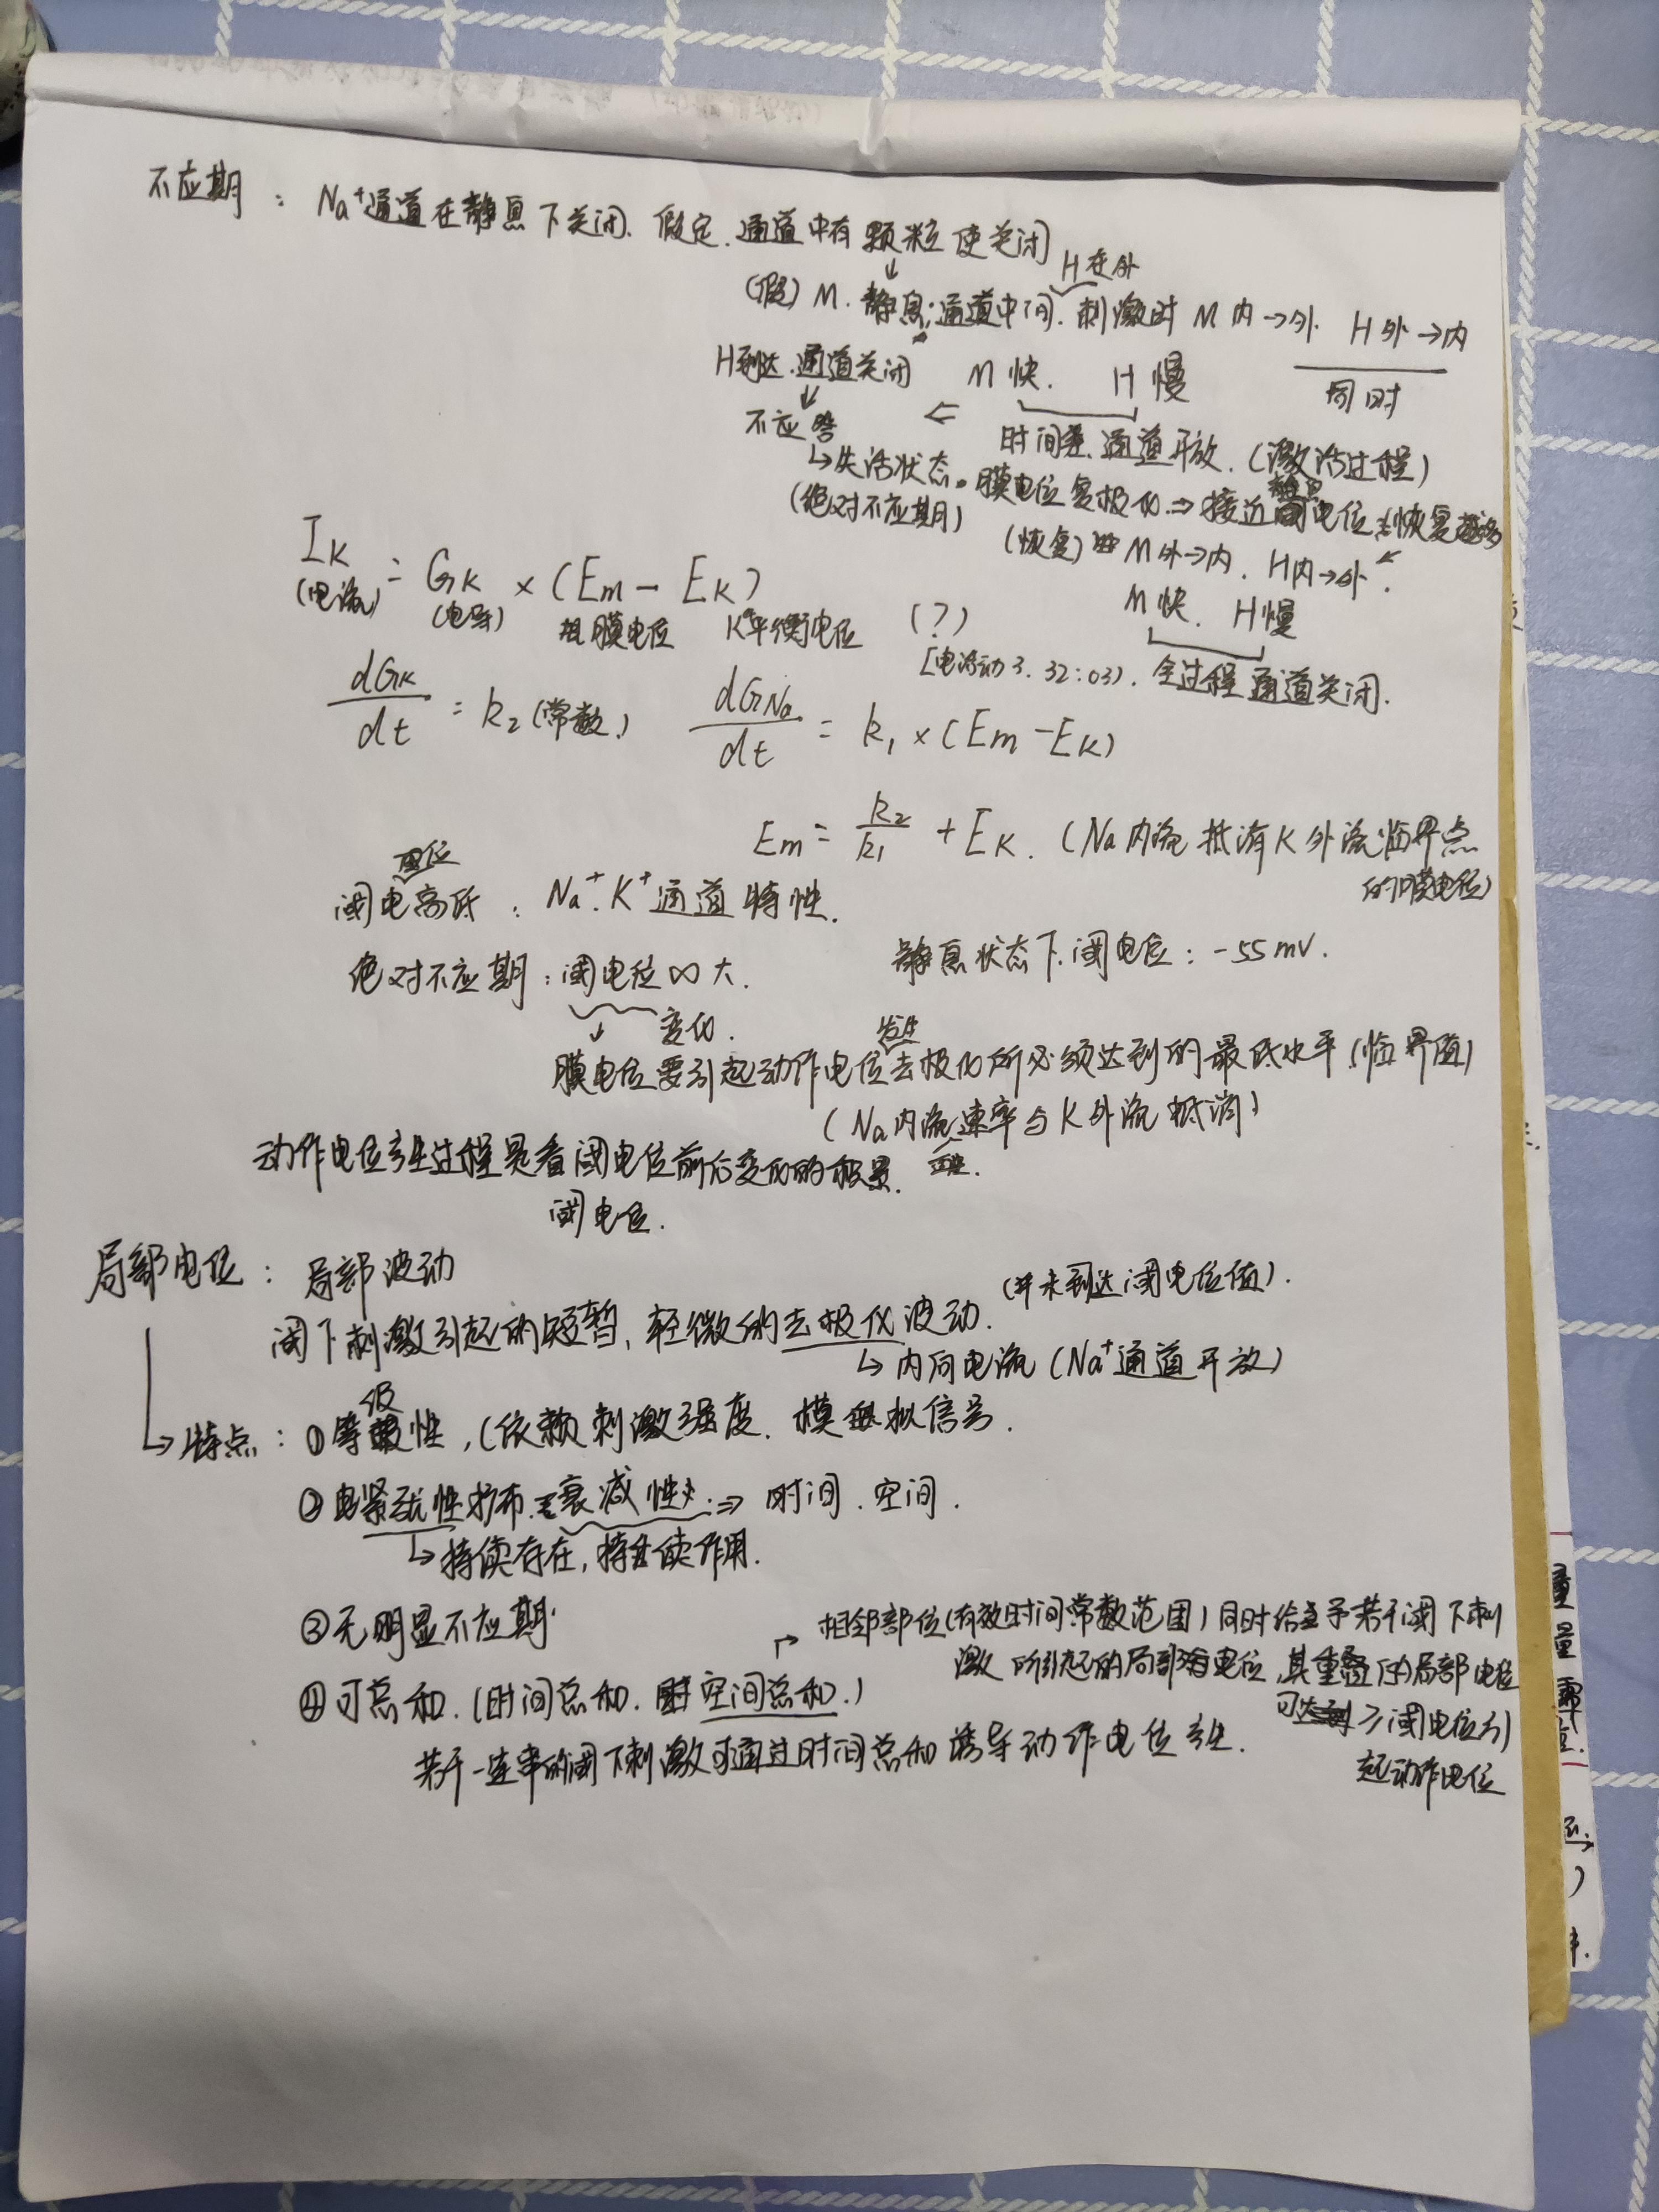 不应期：Na⁺通道在静息下关闭. 假定. 通道中有颗粒使关闭
↓ H在外
(假) M. 静息:通道中间. 刺激时 M 内→外. H外→内
同时
H到达.通道关闭 M快. H慢
↓
不应答 ⇐ 时间差.通道开放. (激活过程)
↳失活状态. 膜电位复极化⇒接近静息电位
(绝对不应期)
(恢复) M外→内. H内→外.
M快. H慢
[电活动3. 32:03). 全过程通道关闭.
I_K = G_K × (Em - E_K)
(电流) (电导) 膜电位 K⁺平衡电位 (?)
dG_K/dt = k₂(常数) dG_Na/dt = k₁×(Em-E_K)
Em = k₂/k₁ + E_K. (Na内流抵消K外流临界点
的膜电位)
电位
阈电高低：Na⁺.K⁺通道特性.
静息状态下.阈电位：-55mV.
绝对不应期：阈电位∞大.
↓ 变化.
发生
膜电位要引起动作电位去极化所必须达到的最低水平(临界值)
(Na内流速率与K外流抵消)
动作电位产生过程是看阈电位前后变化的
阈电位.
局部电位：局部波动
(并未到达阈电位值).
阈下刺激引起的短暂,轻微的去极化波动.
↳内向电流(Na⁺通道开放)
级
↳特点：①等性,(依赖刺激强度. 模拟信号.
②电紧张性扩布.衰减性⇒时间.空间.
↳持续存在,持续作用.
③无明显不应期.
④可总和.(时间总和.空间总和.)
相邻部位(有效时间常数范围)同时给予若干阈下刺
激所引起的局部电位,其重叠的局部电位
可达到≥阈电位引
起动作电位
若干一连串的阈下刺激可通过时间总和诱导动作电位产生.